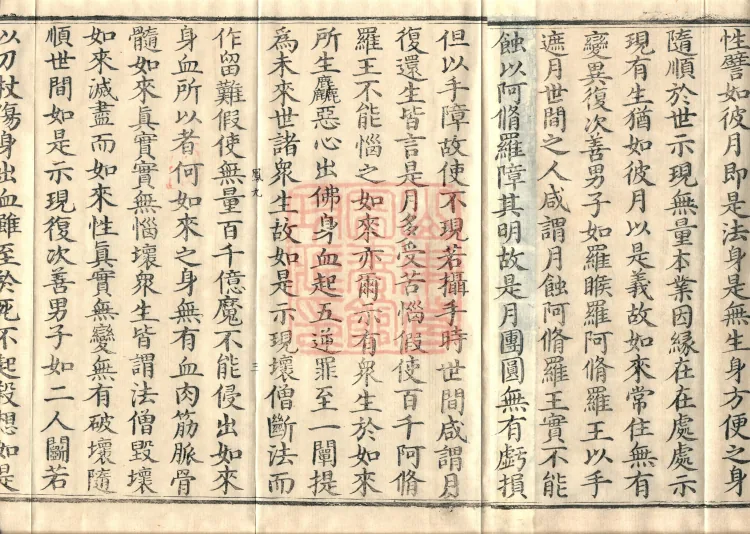 性譬如彼月即是法身是無生身方便之身
隨順於世示現無量本業因緣在在處處示
現有生猶如彼月以是義故如來常住無有
變異復次善男子如羅睺羅阿脩羅王以手
遮月世間之人咸謂月蝕阿脩羅王實不能
蝕以阿脩羅障其明故是月團圓無有虧損
但以手障故使不現若攝手時世間咸謂月
復還生皆言是月多受苦惱假使百千阿脩
羅王不能惱之如來亦爾示有衆生於如來
所生麤惡心出佛身血起五逆罪至一闡提
爲未來世諸衆生故如是示現壞僧斷法而
鳳九 三
作留難假使無量百千億魔不能侵出如來
身血所以者何如來之身無有血肉筋脈骨
髓如來真實實無惱壞衆生皆謂法僧毀壞
如來滅盡而如來性真實無變無有破壞隨
順世間如是示現復次善男子如二人鬭若
以刀杖傷身出血雖至於死不起殺想如是